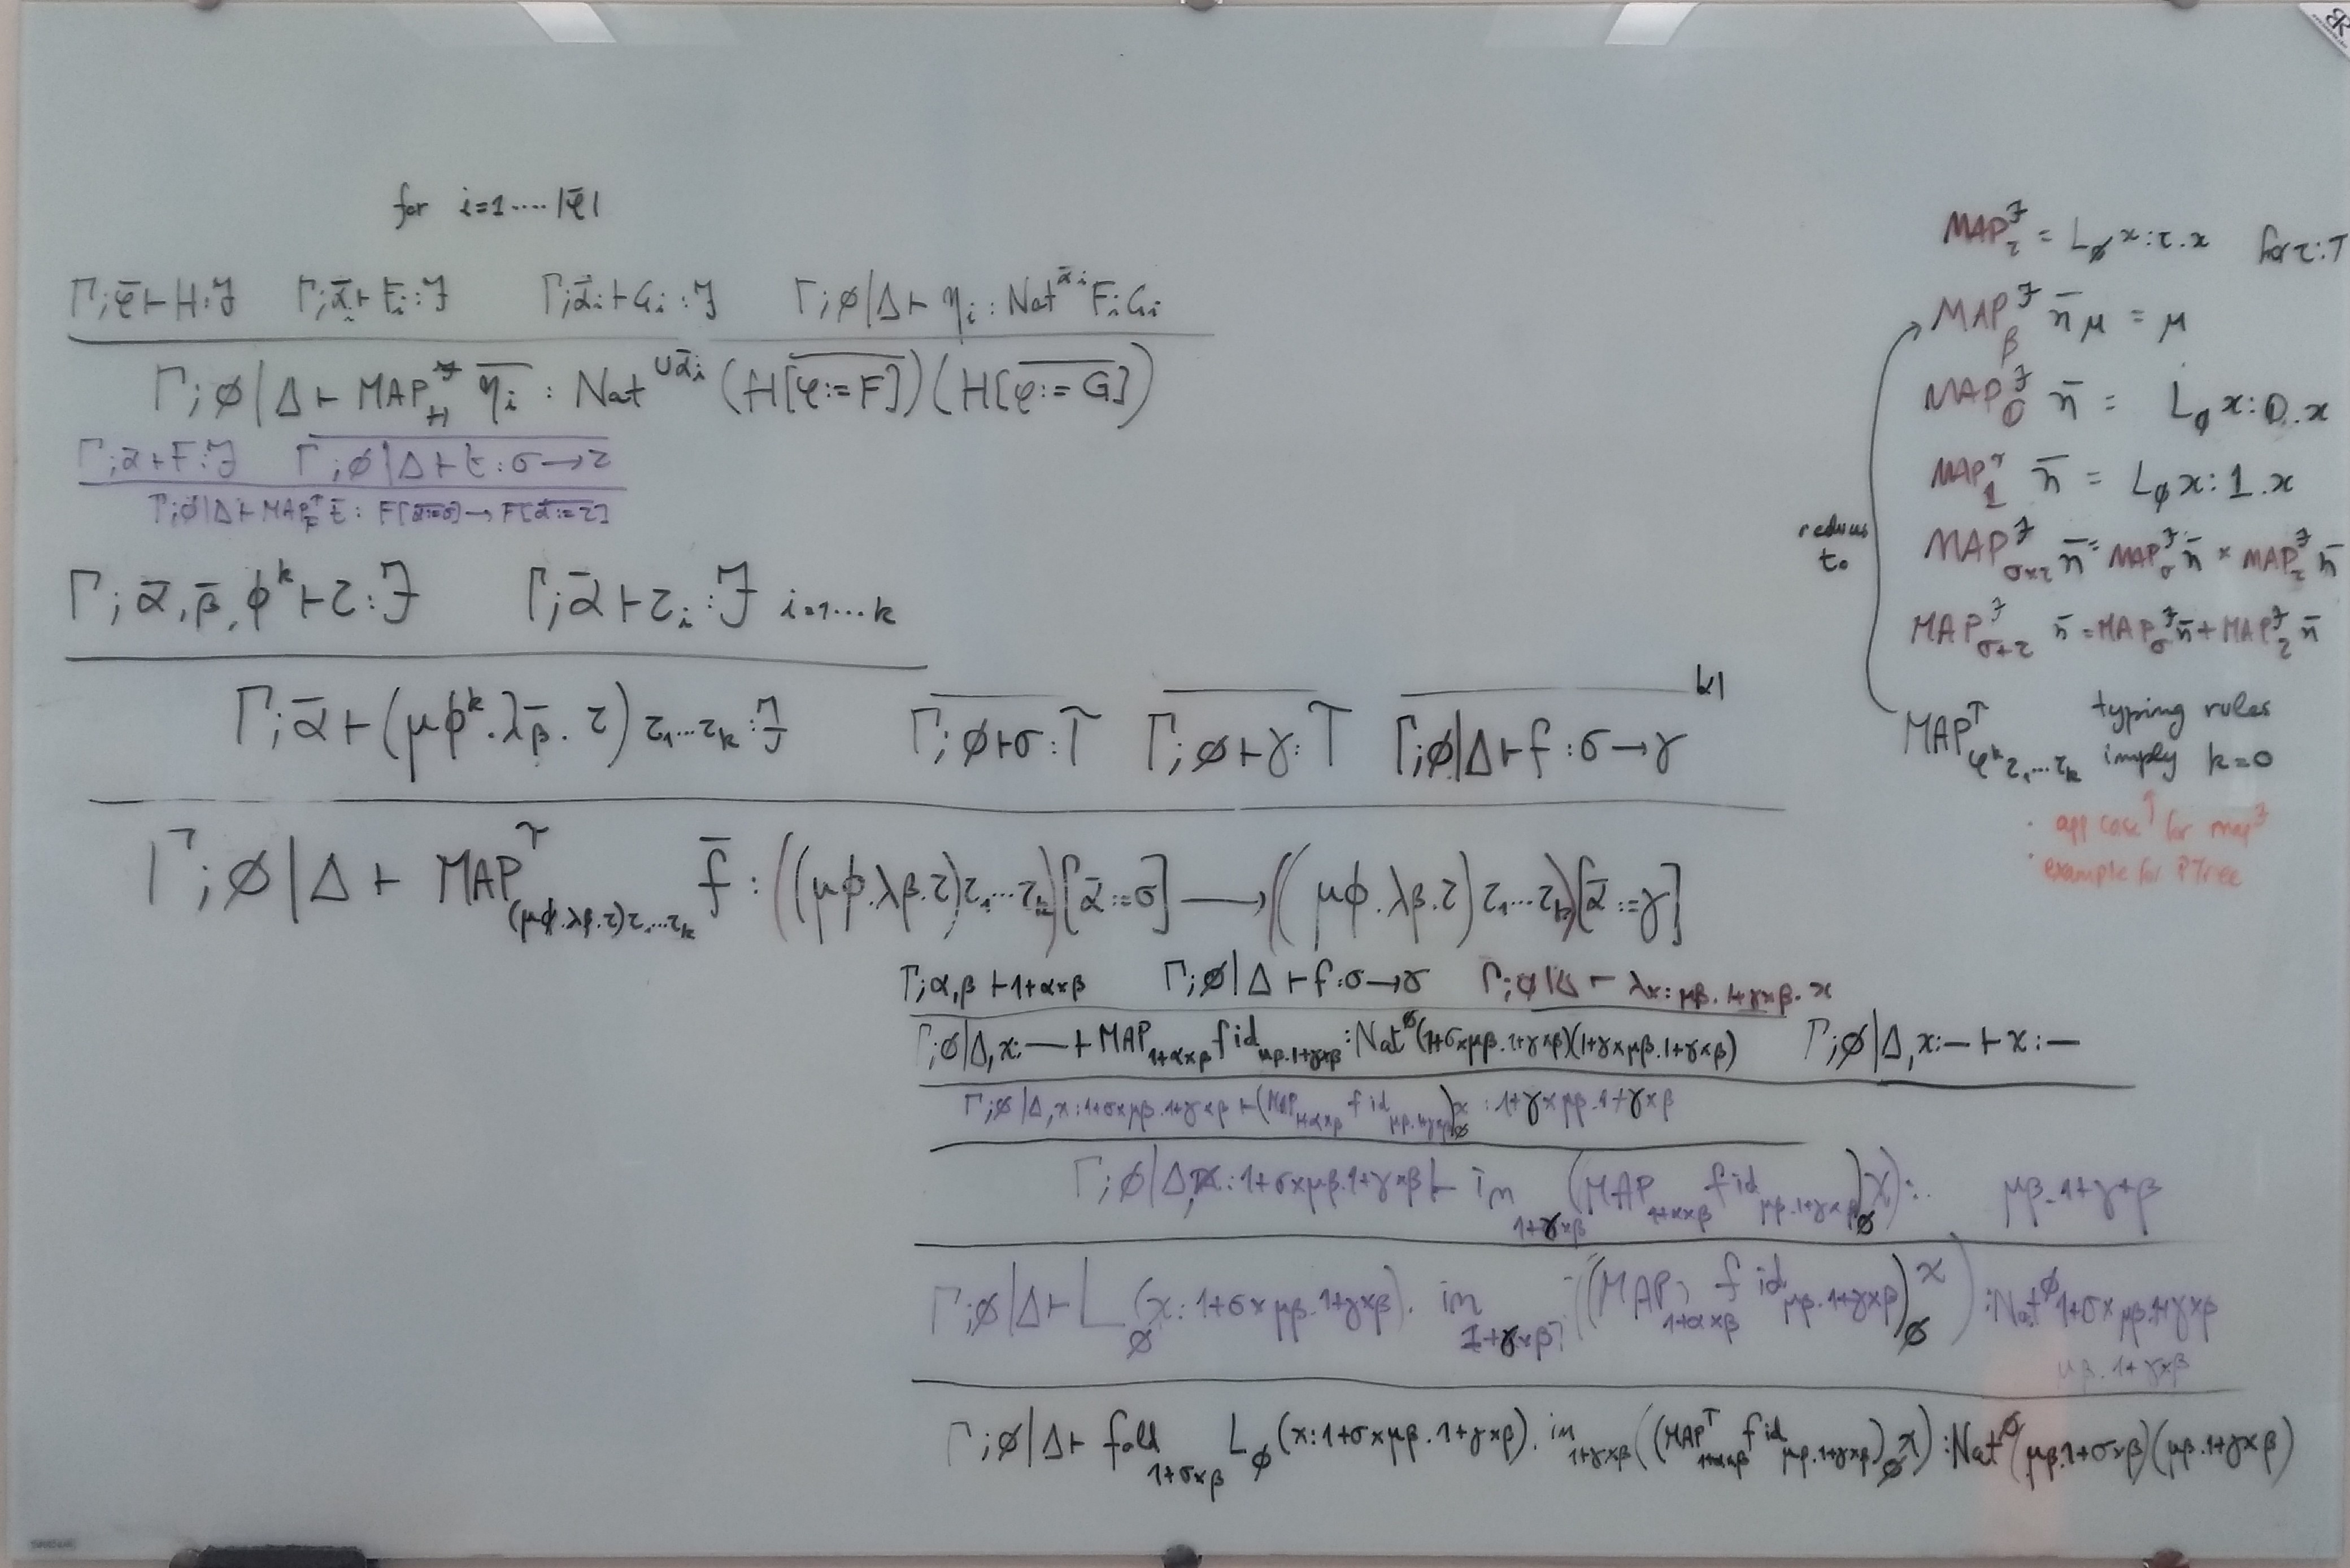 for i=1....|φ̄|
Γ;φ̄ ⊢ H:F Γ;ᾱᵢ ⊢ Fᵢ:F Γ;ᾱᵢ ⊢ Gᵢ:F Γ;∅|Δ ⊢ ηᵢ : Nat^ᾱᵢ Fᵢ Gᵢ
Γ;∅|Δ ⊢ MAP^F_H η̄ᵢ : Nat^∪ᾱᵢ (H[φ:=F])(H[φ:=G])
Γ;α ⊢ F:F Γ;∅|Δ ⊢ t : σ→τ
Γ;∅|Δ ⊢ MAP^T_F t̄ : F[α:=σ] → F[α:=τ]
Γ;ᾱ,β̄,ϕ^k ⊢ τ:F Γ;ᾱ ⊢ τᵢ:F i=1...k
Γ;ᾱ ⊢ (μϕ^k.λβ̄.τ) τ₁...τ_k : F Γ;∅ ⊢ σ:T Γ;∅ ⊢ γ:T Γ;∅|Δ ⊢ f:σ→γ
Γ;∅|Δ ⊢ MAP^T_(μϕ.λβ.τ)τ₁...τ_k f̄ : ((μϕ.λβ.τ)τ₁...τ_k)[ᾱ:=σ] ⟶ ((μϕ.λβ.τ)τ₁...τ_k)[ᾱ:=γ]
Γ;α,β ⊢ 1+α×β Γ;∅|Δ ⊢ f:σ→γ Γ;∅|Δ ⊢ λx:μβ.1+γ×β.x
Γ;∅|Δ,x:— ⊢ MAP_1+α×β f id_μβ.1+γ×β : Nat^∅(1+σ×μβ.1+γ×β)(1+γ×μβ.1+γ×β) Γ;∅|Δ,x:— ⊢ x:—
Γ;∅|Δ,x:1+σ×μβ.1+γ×β ⊢ (MAP_1+α×β f id_μβ.1+γ×β)_∅ x : 1+γ×μβ.1+γ×β
Γ;∅|Δ,x:1+σ×μβ.1+γ×β ⊢ in_1+γ×β ((MAP_1+α×β f id_μβ.1+γ×β)_∅ x): μβ.1+γ+β
Γ;∅|Δ ⊢ L_∅(x:1+σ×μβ.1+γ×β). in_1+γ×β ((MAP_1+α×β f id_μβ.1+γ×β)_∅ x) : Nat^∅ 1+σ×μβ.1+γ×β
μβ.1+γ×β
Γ;∅|Δ ⊢ fold_1+σ×β L_∅(x:1+σ×μβ.1+γ×β). in_1+γ×β ((MAP^T_1+α×β f id_μβ.1+γ×β)_∅ x) : Nat^∅(μβ.1+σ×β)(μβ.1+γ×β)
MAP^F_τ = L_∅ x:τ.x for τ:T
MAP^F_β η̄ μ = μ
MAP^F_0 η̄ = L_∅ x:0.x
MAP^F_1 η̄ = L_∅ x:1.x
MAP^F_σ×τ η̄ = MAP^F_σ η̄ × MAP^F_τ η̄
MAP^F_σ+τ η̄ = MAP^F_σ η̄ + MAP^F_τ η̄
reduces
to
MAP^T_φ^k τ₁...τ_k typing rules
imply k=0
· app case ↑ for map^F
· example for PTree